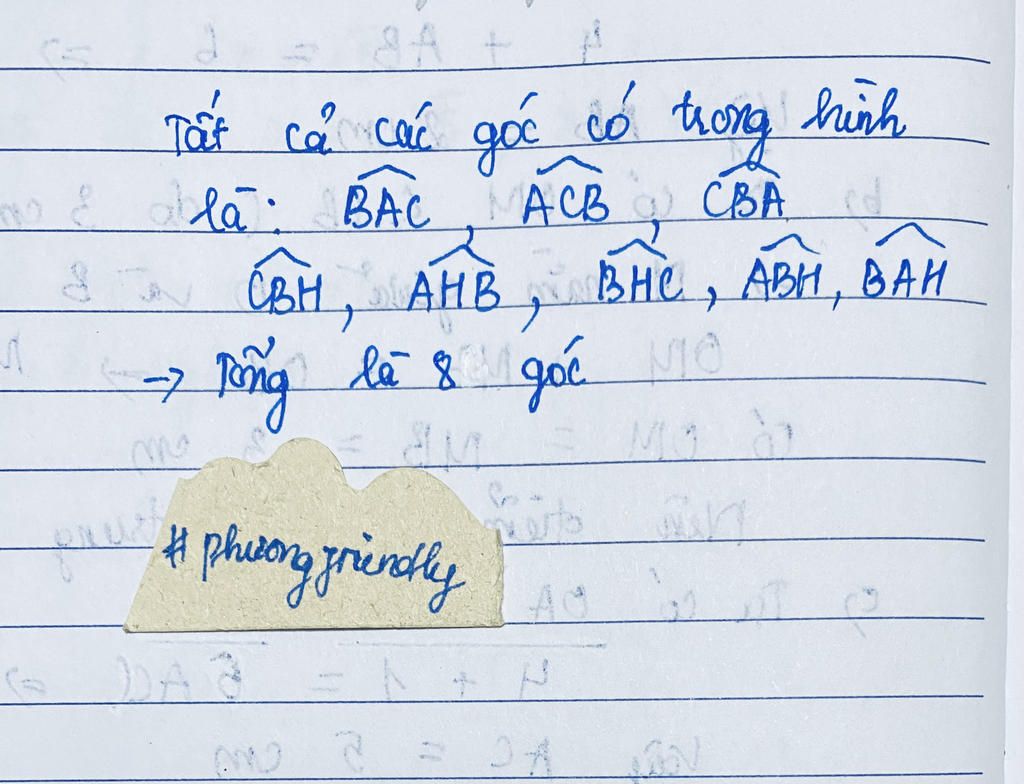 Tất cả các góc có trong hình
là: BAC, ACB, CBA
CBH, AHB, BHC, ABH, BAH
→ Tổng là 8 góc
#phuongfriendly